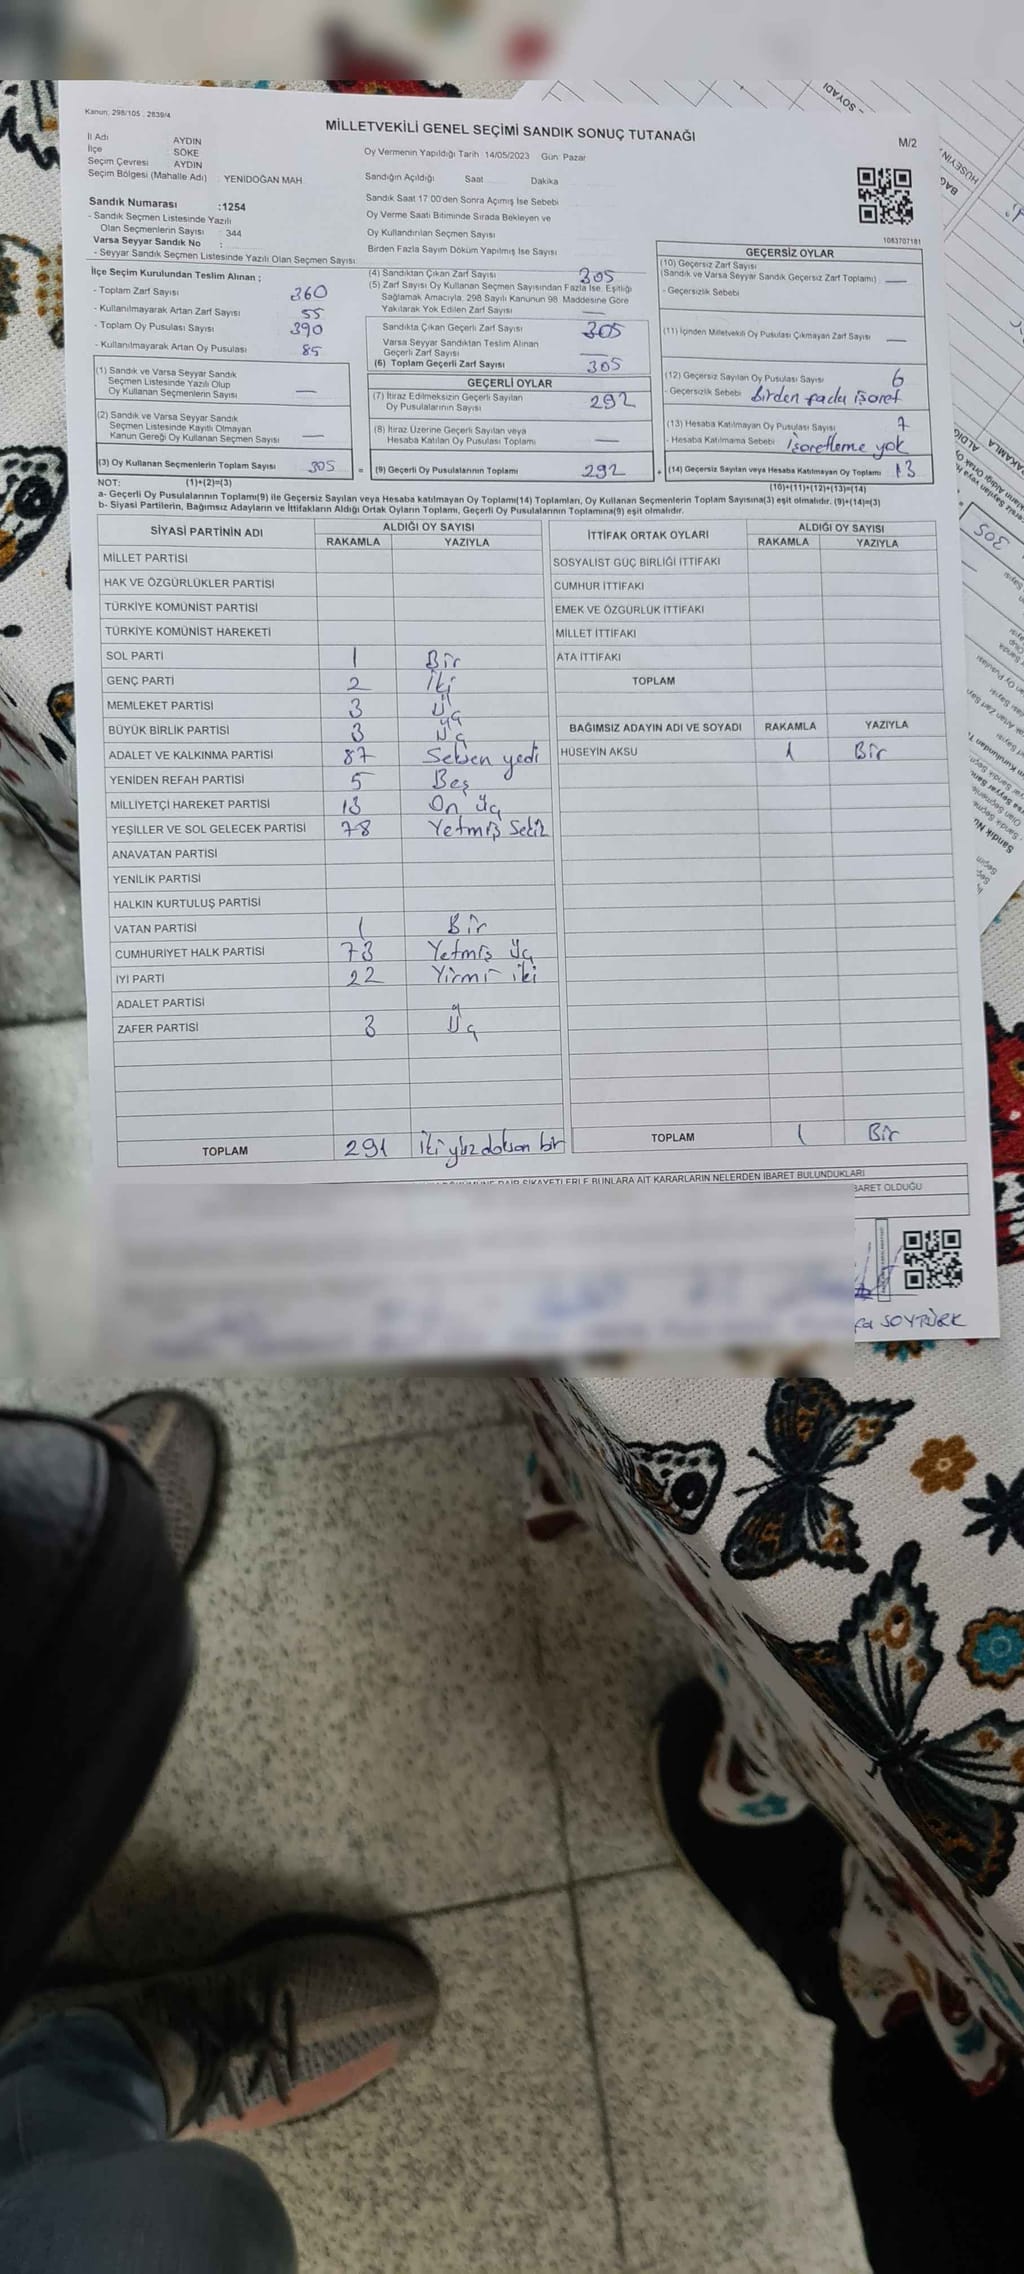 Kanun: 298/105 , 2839/4
MİLLETVEKİLİ GENEL SEÇİMİ SANDIK SONUÇ TUTANAĞI
M/2
İl Adı : AYDIN
İlçe : SÖKE
Seçim Çevresi : AYDIN
Seçim Bölgesi (Mahalle Adı) : YENİDOĞAN MAH.
Oy Vermenin Yapıldığı Tarih 14/05/2023 Gün: Pazar
Sandığın Açıldığı Saat Dakika
Sandık Saat 17 00'den Sonra Açımış İse Sebebi
Oy Verme Saati Bitiminde Sırada Bekleyen ve
Oy Kullandırılan Seçmen Sayısı
Birden Fazla Sayım Döküm Yapılmış İse Sayısı
Sandık Numarası :1254
- Sandık Seçmen Listesinde Yazılı
Olan Seçmenlerin Sayısı : 344
Varsa Seyyar Sandık No :
- Seyyar Sandık Seçmen Listesinde Yazılı Olan Seçmen Sayısı:
1063707181
İlçe Seçim Kurulundan Teslim Alınan ;
- Toplam Zarf Sayısı 360
- Kullanılmayarak Artan Zarf Sayısı 55
- Toplam Oy Pusulası Sayısı 390
- Kullanılmayarak Artan Oy Pusulası 85
(1) Sandık ve Varsa Seyyar Sandık
Seçmen Listesinde Yazılı Olup
Oy Kullanan Seçmenlerin Sayısı —
(2) Sandık ve Varsa Seyyar Sandık
Seçmen Listesinde Kayıtlı Olmayan
Kanun Gereği Oy Kullanan Seçmen Sayısı —
(3) Oy Kullanan Seçmenlerin Toplam Sayısı 305 =
(4) Sandıktan Çıkan Zarf Sayısı 305
(5) Zarf Sayısı Oy Kullanan Seçmen Sayısından Fazla İse, Eşitliği
Sağlamak Amacıyla, 298 Sayılı Kanunun 98. Maddesine Göre
Yakılarak Yok Edilen Zarf Sayısı —
Sandıkta Çıkan Geçerli Zarf Sayısı 305
Varsa Seyyar Sandıktan Teslim Alınan
Geçerli Zarf Sayısı —
(6) Toplam Geçerli Zarf Sayısı 305
GEÇERLİ OYLAR
(7) İtiraz Edilmeksizin Geçerli Sayılan
Oy Pusulalarının Sayısı 292
(8) İtiraz Üzerine Geçerli Sayılan veya
Hesaba Katılan Oy Pusulası Toplamı —
(9) Geçerli Oy Pusulalarının Toplamı 292 +
GEÇERSİZ OYLAR
(10) Geçersiz Zarf Sayısı
(Sandık ve Varsa Seyyar Sandık Geçersiz Zarf Toplamı) —
- Geçersizlik Sebebi
(11) İçinden Milletvekili Oy Pusulası Çıkmayan Zarf Sayısı —
(12) Geçersiz Sayılan Oy Pusulası Sayısı 6
- Geçersizlik Sebebi Birden fazla işaret
(13) Hesaba Katılmayan Oy Pusulası Sayısı 7
- Hesaba Katılmama Sebebi İşaretleme yok
(14) Geçersiz Sayılan veya Hesaba Katılmayan Oy Toplamı 13
NOT: (1)+(2)=(3)
(10)+(11)+(12)+(13)=(14)
a- Geçerli Oy Pusulalarının Toplamı(9) ile Geçersiz Sayılan veya Hesaba katılmayan Oy Toplamı(14) Toplamları, Oy Kullanan Seçmenlerin Toplam Sayısına(3) eşit olmalıdır. (9)+(14)=(3)
b- Siyasi Partilerin, Bağımsız Adayların ve İttifakların Aldığı Ortak Oyların Toplamı, Geçerli Oy Pusulalarının Toplamına(9) eşit olmalıdır.
SİYASİ PARTİNİN ADI ALDIĞI OY SAYISI
RAKAMLA YAZIYLA
MİLLET PARTİSİ
HAK VE ÖZGÜRLÜKLER PARTİSİ
TÜRKİYE KOMÜNİST PARTİSİ
TÜRKİYE KOMÜNİST HAREKETİ
SOL PARTİ 1 Bir
GENÇ PARTİ 2 İki
MEMLEKET PARTİSİ 3 Üç
BÜYÜK BİRLİK PARTİSİ 3 Üç
ADALET VE KALKINMA PARTİSİ 87 Seksen yedi
YENİDEN REFAH PARTİSİ 5 Beş
MİLLİYETÇİ HAREKET PARTİSİ 13 On üç
YEŞİLLER VE SOL GELECEK PARTİSİ 78 Yetmiş Sekiz
ANAVATAN PARTİSİ
YENİLİK PARTİSİ
HALKIN KURTULUŞ PARTİSİ
VATAN PARTİSİ 1 Bir
CUMHURİYET HALK PARTİSİ 73 Yetmiş Üç
İYİ PARTİ 22 Yirmi iki
ADALET PARTİSİ
ZAFER PARTİSİ 3 Üç
TOPLAM 291 İki yüz doksan bir
İTTİFAK ORTAK OYLARI ALDIĞI OY SAYISI
RAKAMLA YAZIYLA
SOSYALİST GÜÇ BİRLİĞİ İTTİFAKI
CUMHUR İTTİFAKI
EMEK VE ÖZGÜRLÜK İTTİFAKI
MİLLET İTTİFAKI
ATA İTTİFAKI
TOPLAM
BAĞIMSIZ ADAYIN ADI VE SOYADI RAKAMLA YAZIYLA
HÜSEYİN AKSU 1 Bir
TOPLAM 1 Bir
ŞİKAYETLERLE BUNLARA AİT KARARLARIN NELERDEN İBARET BULUNDUKLARI
BARET OLDUĞU
SOYTÜRK